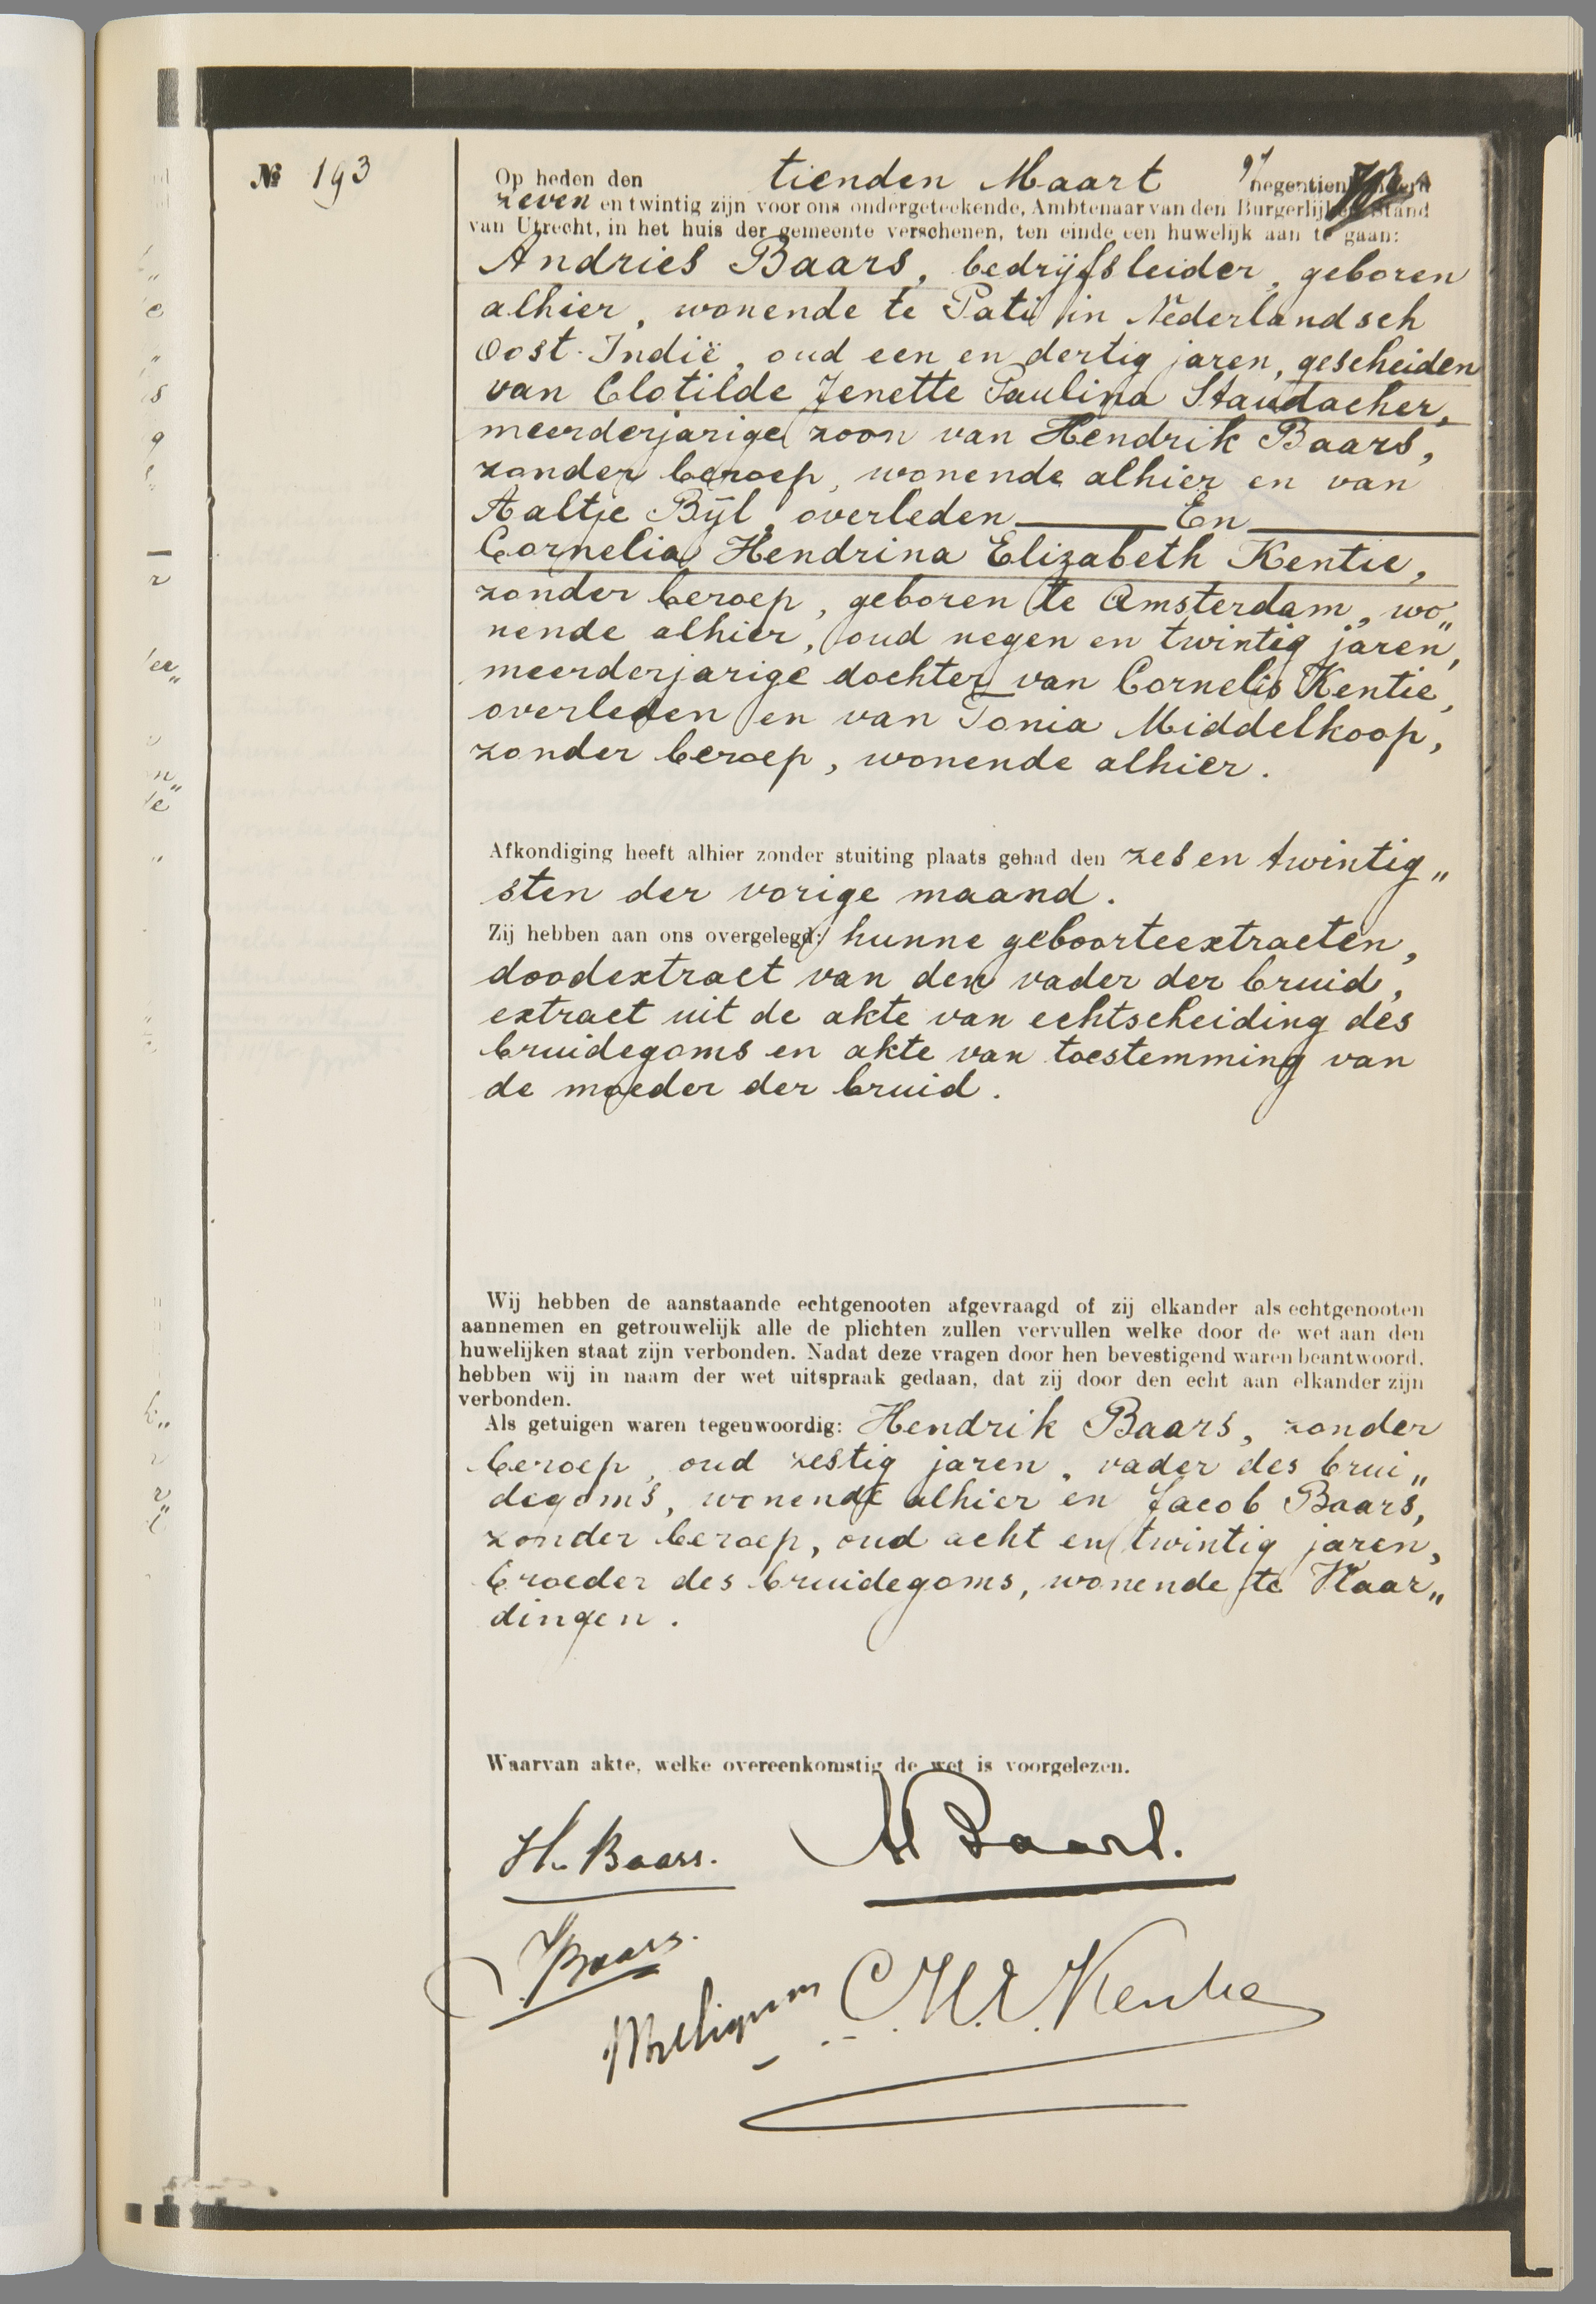 № 193
Op heden den tienden Maart negentienhonderd
zeven en twintig zijn voor ons ondergeteekende, Ambtenaar van den Burgerlijken Stand
van Utrecht, in het huis der gemeente verschenen, ten einde een huwelijk aan te gaan:
Andries Baars, bedrijfsleider, geboren
alhier, wonende te Pati in Nederlandsch
Oost-Indië, oud een en dertig jaren, gescheiden
van Clotilde Jenette Paulina Staudacher,
meerderjarige zoon van Hendrik Baars,
zonder beroep, wonende alhier en van
Aaltje Bijl, overleden ——— En ———
Cornelia Hendrina Elizabeth Kentie,
zonder beroep, geboren te Amsterdam, wo„
nende alhier, oud negen en twintig jaren,
meerderjarige dochter van Cornelis Kentie,
overleden en van Tonia Middelkoop,
zonder beroep, wonende alhier.
Afkondiging heeft alhier zonder stuiting plaats gehad den zes en twintig„
sten der vorige maand.
Zij hebben aan ons overgelegd: hunne geboorteextracten,
doodextract van den vader der bruid,
extract uit de akte van echtscheiding des
bruidegoms en akte van toestemming van
de moeder der bruid.
Wij hebben de aanstaande echtgenooten afgevraagd of zij elkander als echtgenooten
aannemen en getrouwelijk alle de plichten zullen vervullen welke door de wet aan den
huwelijken staat zijn verbonden. Nadat deze vragen door hen bevestigend waren beantwoord,
hebben wij in naam der wet uitspraak gedaan, dat zij door den echt aan elkander zijn
verbonden.
Als getuigen waren tegenwoordig: Hendrik Baars, zonder
beroep, oud zestig jaren, vader des brui„
degoms, wonende alhier en Jacob Baars,
zonder beroep, oud acht en twintig jaren,
broeder des bruidegoms, wonende te Vlaar„
dingen.
Waarvan akte, welke overeenkomstig de wet is voorgelezen.
H. Baars. A Baars.
J Baars.
C. H. E. Kentie